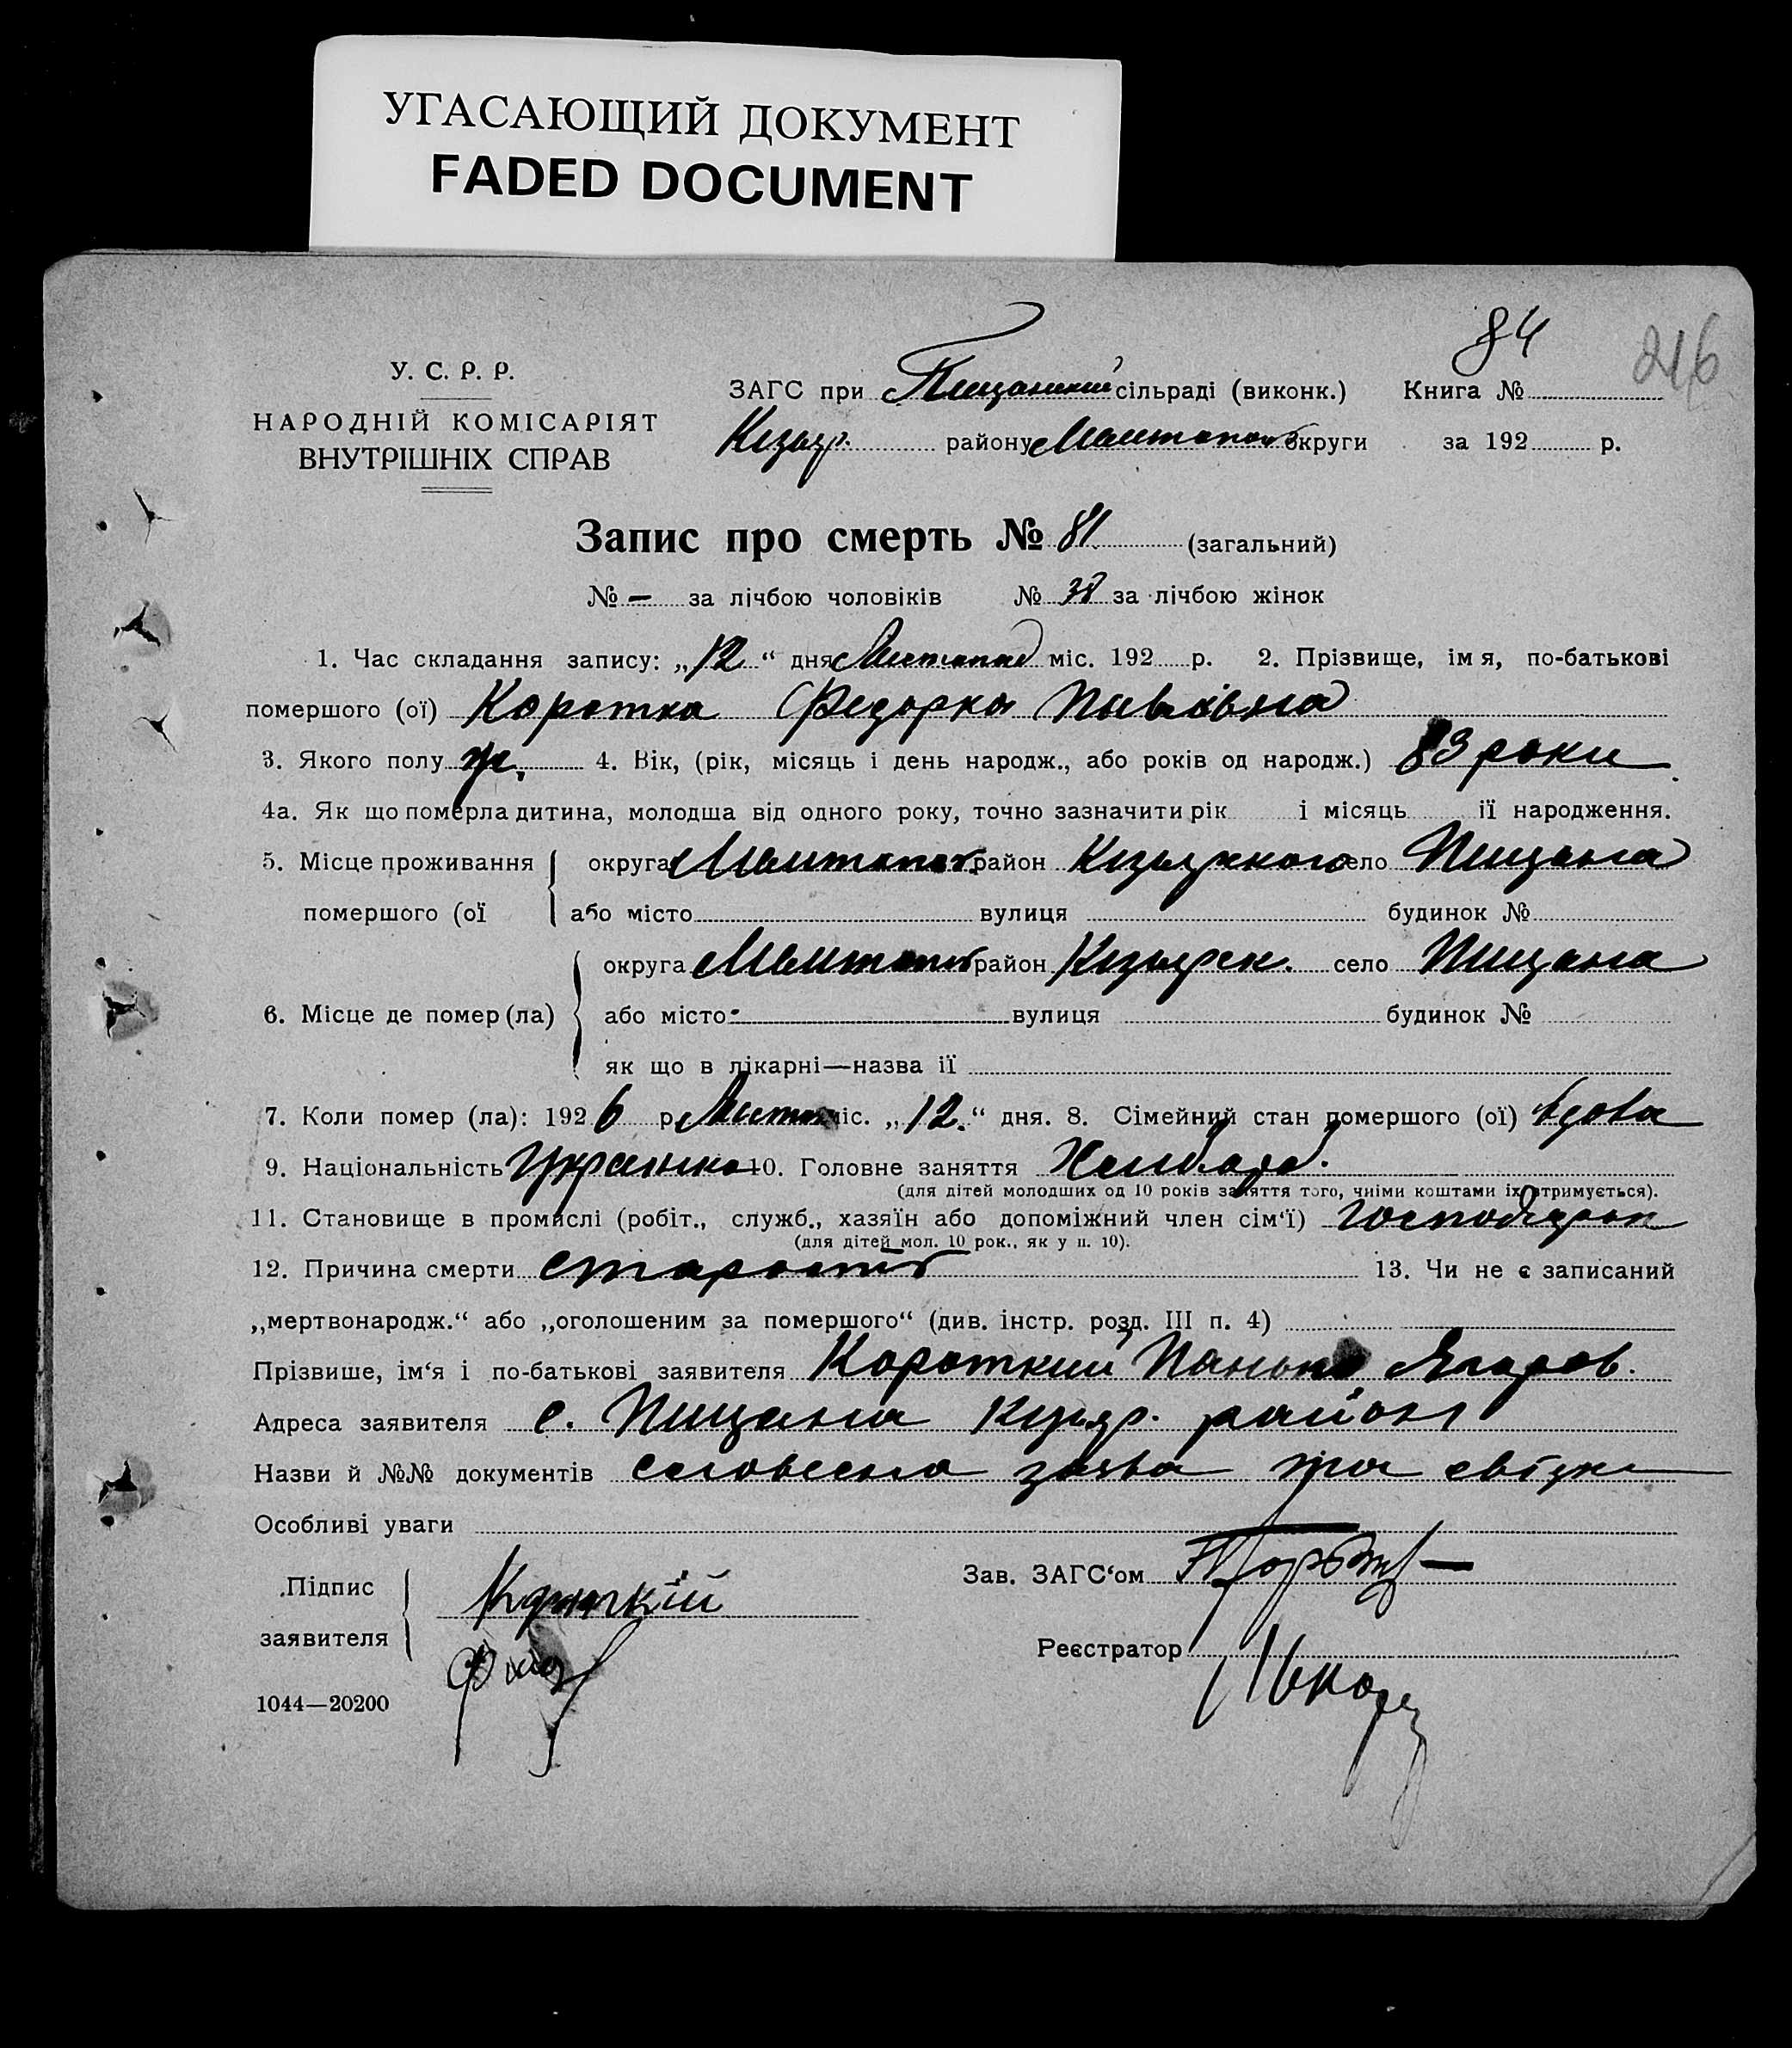 УГАСАЮЩИЙ ДОКУМЕНТ
FADED DOCUMENT
84
216
У. С. Р. Р.
НАРОДНІЙ КОМІСАРІЯТ
ВНУТРІШНІХ СПРАВ
ЗАГС при Пищанский сільраді (виконк.) Книга №
району округи за 192 р.
Запис про смерть № 81 (загальний)
№ – за лічбою чоловіків № 38 за лічбою жінок
1. Час складання запису: „12“ дня Листопад міс. 192 р. 2. Прізвище, імя, по-батькові
помершого (ої) Коротка Федорка Павлівна
3. Якого полу ж. 4. Вік, (рік, місяць і день народж., або років од народж.) 83 роки
4а. Як що померла дитина, молодша від одного року, точно зазначити рік і місяць ії народження.
5. Місце проживання округа район село Пищана
помершого (ої або місто вулиця будинок №
округа район село Пищана
6. Місце де помер (ла) або місто вулиця будинок №
як що в лікарні—назва ії
7. Коли помер (ла): 1926 р. міс. „12.“ дня. 8. Сімейний стан помершого (ої) вдова
9. Національність Українка 10. Головне заняття Хлибороб.
(для дітей молодших од 10 років заняття того, чиїми коштами їх утримується).
11. Становище в промислі (робіт., служб., хазяїн або допоміжний член сім‘ї)
(для дітей мол. 10 рок., як у п. 10).
12. Причина смерти старость 13. Чи не є записаний
„мертвонародж.“ або „оголошеним за помершого“ (див. інстр. розд. III п. 4)
Прізвише, ім‘я і по-батькові заявителя Короткий Панько
Адреса заявителя с. Пищана район
Назви й №№ документів словесна заява та свідки
Особливі уваги
Підпис
заявителя
Зав. ЗАГС‘ом
Реєстратор
1044—20200